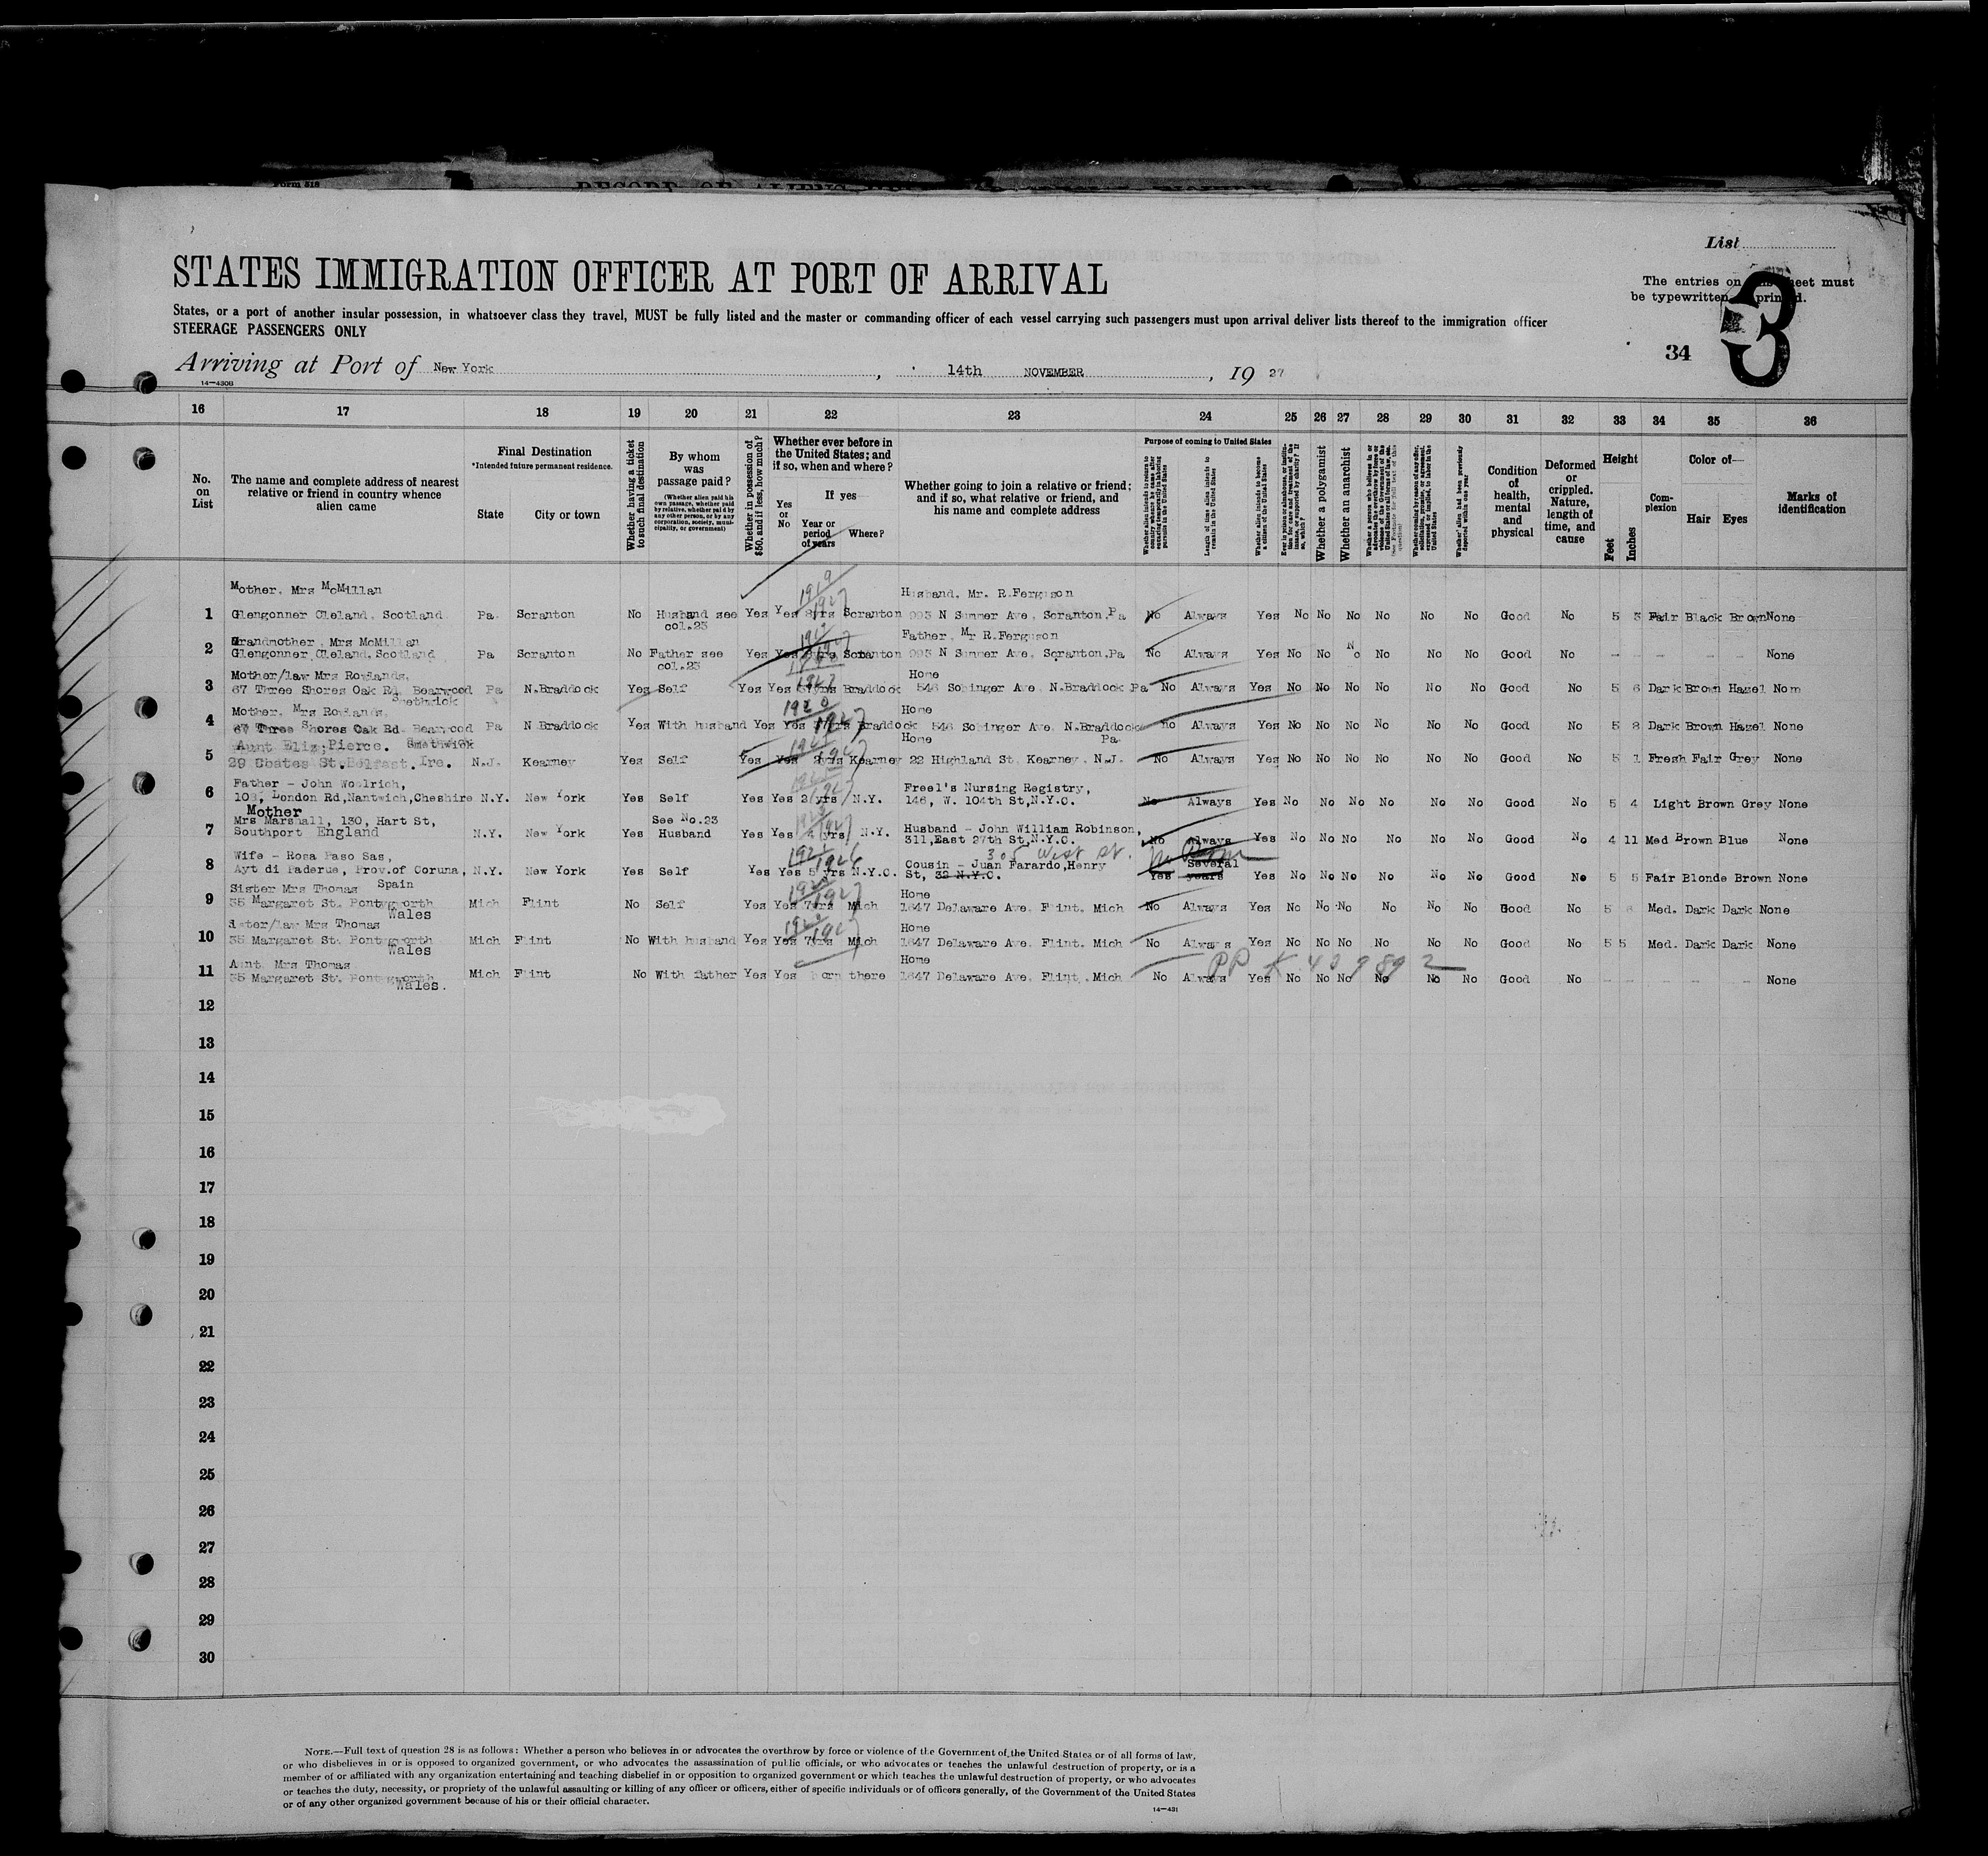 Form 518
List
STATES IMMIGRATION OFFICER AT PORT OF ARRIVAL
The entries on this sheet must
be typewritten or printed.
States, or a port of another insular possession, in whatsoever class they travel, MUST be fully listed and the master or commanding officer of each vessel carrying such passengers must upon arrival deliver lists thereof to the immigration officer
STEERAGE PASSENGERS ONLY
34 3
Arriving at Port of New York, 14th NOVEMBER, 19 27
14—430B
16 17 18 19 20 21 22 23 24 25 26 27 28 29 30 31 32 33 34 35 36
No. on List
The name and complete address of nearest relative or friend in country whence alien came
Final Destination
*Intended future permanent residence.
State City or town
Whether having a ticket to such final destination
By whom was passage paid?
(Whether alien paid his own passage, whether paid by relative, whether paid by any other person, or by any corporation, society, municipality, or government)
Whether in possession of $50, and if less, how much?
Whether ever before in the United States; and if so, when and where?
Yes or No
If yes—
Year or period of years Where?
Whether going to join a relative or friend; and if so, what relative or friend, and his name and complete address
Purpose of coming to United States
Whether alien intends to return to country whence he came after engaging temporarily in laboring pursuits in the United States
Length of time alien intends to remain in the United States
Whether alien intends to become a citizen of the United States
Ever in prison or almshouse, or institution for care and treatment of the insane, or supported by charity? If so, which?
Whether a polygamist
Whether an anarchist
Whether coming by reason of any offer, solicitation, promise, or agreement, expressed or implied, to labor in the United States
Whether alien had been previously deported within one year
Condition of health, mental and physical
Deformed or crippled. Nature, length of time, and cause
Height
Feet Inches
Complexion
Color of—
Hair Eyes
Marks of identification
Mother. Mrs McMillan Husband. Mr. R.Ferguson
1 Glengonner Cleland. Scotland Pa. Scranton No Husband see col.23 Yes Yes 8yrs 1919 1927 Scranton 993 N Sumner Ave. Scranton.Pa No Always Yes No No No No No No Good No 5 3 Fair Black Brown None
Grandmother Mrs McMillan Father. Mr R.Ferguson
2 Glengonner Cleland. Scotland Pa Scranton No Father see col.23 Yes Yes Scranton 993 N Sumner Ave. Scranton.Pa No Always Yes No No No No No No Good No - - - - - None
Mother/law Mrs Rowlands. Home
3 67 Three Shores Oak Rd. Bearwood Smethwick Pa N.Braddock Yes Self Yes Yes 1927 Braddock 546 Sobinger Ave N.Braddock Pa No Always Yes No No No No No No Good No 5 6 Dark Brown Hazel None
Mother. Mrs Rowlands. Home
4 67 Three Shores Oak Rd. Bearwood Smethwick Pa N Braddock Yes With husband Yes Yes 1920 1927 Braddock 546 Sobinger Ave. N.Braddock Pa. No Always Yes No No No No No No Good No 5 3 Dark Brown Hazel None
Aunt Eliz;Pierce. Home
5 29 Coates St.Belfast. Ire. N.J. Kearney Yes Self Yes Yes 1927 Kearney 22 Highland St. Kearney. N.J. No Always Yes No No No No No No Good No 5 1 Fresh Fair Grey None
Father - John Woolrich, Freel's Nursing Registry,
6 108, London Rd,Nantwich,Cheshire N.Y. New York Yes Self Yes Yes 2 yrs 1927 N.Y. 146, W. 104th St,N.Y.C. No Always Yes No No No No No No Good No 5 4 Light Brown Grey None
Mother
Mrs Marshall, 130, Hart St, See No.23 Husband - John William Robinson,
7 Southport England N.Y. New York Yes Husband Yes Yes 4 yrs 1923 1927 N.Y. 311,East 27th St,N.Y.C. No Always Yes No No No No No No Good No 4 11 Med Brown Blue None
305 West St.
Wife - Rosa Paso Sas, Cousin - Juan Farardo,Henry
8 Ayt di Paderue, Prov.of Coruna, Spain N.Y. New York Yes Self Yes Yes 5 yrs 1921 1926 N.Y.C. St, 32 N.Y.C. Yes Several years No Perm Yes No No No No No No Good No 5 5 Fair Blonde Brown None
Sister Mrs Thomas Home
9 35 Margaret St. Pontygworth Wales Mich Flint No Self Yes Yes 7yrs 1920 1927 Mich 1647 Delaware Ave. Flint. Mich No Always Yes No No No No No No Good No 5 Med. Dark Dark None
Sister/law Mrs Thomas Home
10 35 Margaret St. Pontygworth Wales Mich Flint No With husband Yes Yes 7yrs 1920 1927 Mich 1647 Delaware Ave. Flint. Mich No Always Yes No No No No No No Good No 5 5 Med. Dark Dark None
Aunt. Mrs Thomas Home PP # 409892
11 35 Margaret St. Pontygworth Wales. Mich Flint No With father Yes Yes born there 1647 Delaware Ave. Flint. Mich No Always Yes No No No No No No Good No - - - - - None
12
13
14
15
16
17
18
19
20
21
22
23
24
25
26
27
28
29
30
NOTE.—Full text of question 28 is as follows: Whether a person who believes in or advocates the overthrow by force or violence of the Government of the United States or of all forms of law,
or who disbelieves in or is opposed to organized government, or who advocates the assassination of public officials, or who advocates or teaches the unlawful destruction of property, or is a
member of or affiliated with any organization entertaining and teaching disbelief in or opposition to organized government or which teaches the unlawful destruction of property, or who advocates
or teaches the duty, necessity, or propriety of the unlawful assaulting or killing of any officer or officers, either of specific individuals or of officers generally, of the Government of the United States
or of any other organized government because of his or their official character.
14—431